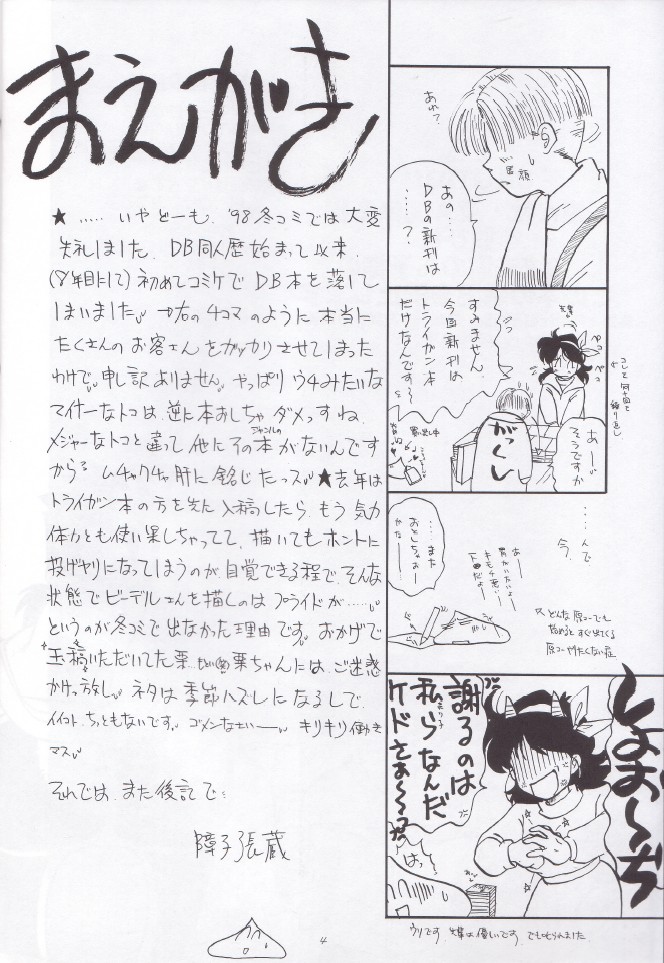 まえがき
★ ..... いやどーも、'98冬コミでは大変
失礼しました。DB同人歴始まって以来、
(8年目にして)初めてコミケでDB本を落して
しまいました →右の4コマのように本当に
たくさんのお客さんをガッカリさせてしまった
わけで、申し訳ありません。やっぱりウチみたいな
マイナーなトコは逆に本おしちゃダメっすね
メジャーなトコと違って他にそのジャンルの本がないんです
から ムチャクチャ肝に銘じたっス ★去年は
トライガン本の方を先に入稿したら、もう気力
体力とも使い果しちゃってて、描いてもホントに
投げヤリになってしまうのが自覚できる程で、そんな
状態でビーデルさんを描くのはプライドが.....
というのが冬コミで出なかった理由です。おかげで
玉稿いただいてた栗ちゃんには、ご迷惑
かけっ放し。ネタは季節ハズレになるしで、
イイコト、ちっともないです。ゴメンなさいー キリキリ働き
マス
それでは、また後記で
障子張蔵
4
あれ?
笑顔
あの......
DBの新刊は
......?
すみません、
今回新刊は
トライガン本
だけなんです〜
ペコ
ペコ
あー
そうですか
がっくし
コレを何十回と
繰り返し
......んで
今、
......また
おとしちゃぉー
かなー
あー
胃がいたいよー
キモチ悪いー
下痢だよー
どんな原コーでも
始めるとすぐ出てくる
原コーやりたくない症
しょお〜ぢ
謝るのは
私らなんだ
ケドさぁ〜〜
はっ
ウソです、先輩は優しいです。でも叱られました。